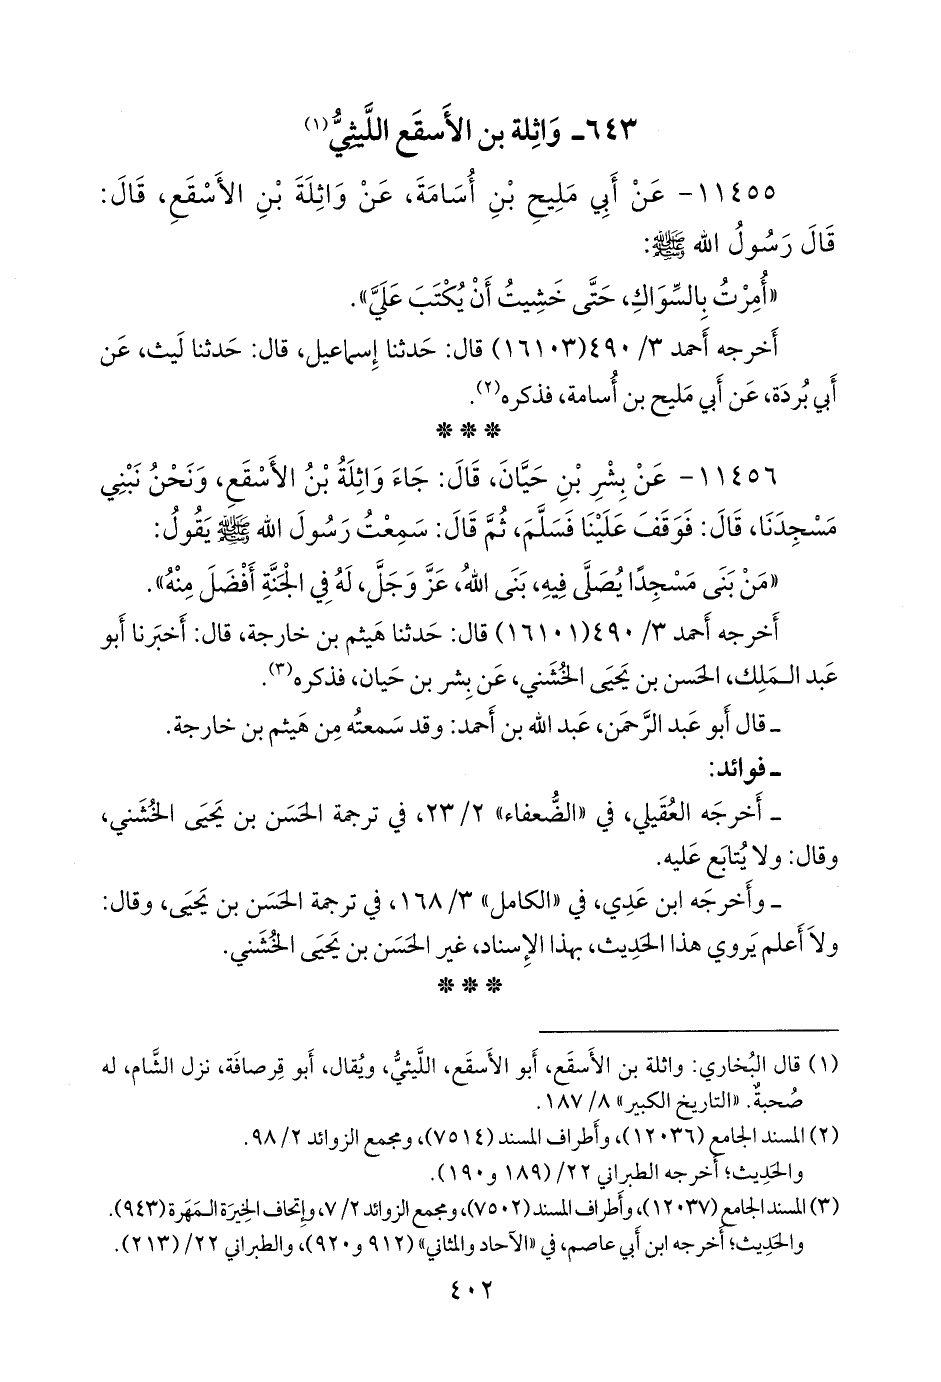 ٦٤٣ـ وَاثِلة بن الأَسقَع اللَّيثِيُّ(١)
١١٤٥٥ - عَنْ أَبِي مَلِيحِ بْنِ أُسَامَةَ، عَنْ وَاثِلَةَ بْنِ الأَسْقَعِ، قَالَ:
قَالَ رَسُولُ الله ﷺ:
«أُمِرْتُ بِالسِّوَاكِ، حَتَّى خَشِيتُ أَنْ يُكْتَبَ عَلَيَّ».
أَخرجه أَحمد ٣/ ٤٩٠(١٦١٠٣) قال: حَدثنا إِسماعيل، قال: حَدثنا لَيث، عَن
أَبي بُردَة، عَن أَبي مَليح بن أُسامة، فذكره(٢).
* * *
١١٤٥٦ - عَنْ بِشْرِ بْنِ حَيَّانَ، قَالَ: جَاءَ وَاثِلَةُ بْنُ الأَسْقَعِ، وَنَحْنُ نَبْنِي
مَسْجِدَنَا، قَالَ: فَوَقَفَ عَلَيْنَا فَسَلَّمَ، ثُمَّ قَالَ: سَمِعْتُ رَسُولَ الله ﷺ يَقُولُ:
«مَنْ بَنَى مَسْجِدًا يُصَلَّى فِيهِ، بَنَى اللهُ، عَزَّ وَجَلَّ، لَهُ فِي الْجَنَّةِ أَفْضَلَ مِنْهُ».
أَخرجه أَحمد ٣/ ٤٩٠(١٦١٠١) قال: حَدثنا هَيثم بن خارجة، قال: أَخبَرنا أَبو
عَبد الـمَلِك، الحَسن بن يَحيَى الخُشَني، عَن بِشر بن حَيان، فذكره(٣).
ـ قال أَبو عَبد الرَّحمَن، عَبد الله بن أَحمد: وقد سَمعتُه مِن هَيثم بن خارجة.
ـ فوائد:
ـ أَخرجَه العُقَيلي، في «الضُّعفاء» ٢/ ٢٣، في ترجمة الحَسَن بن يَحيَى الخُشَني،
وقال: ولا يُتابَع عَليه.
ـ وأَخرجَه ابن عَدِي، في «الكامل» ٣/ ١٦٨، في ترجمة الحَسَن بن يَحيَى، وقال:
ولاَ أَعلم يَروي هذا الحَدِيث، بهذا الإِسناد، غير الحَسَن بن يَحيَى الخُشَني.
* * *
(١) قال البُخاري: واثلة بن الأَسقَع، أَبو الأَسقَع، اللَّيثيُّ، ويُقال، أَبو قِرصافَة، نزل الشَّام، له
صُحبةٌ. «التاريخ الكبير» ٨/ ١٨٧.
(٢) المسند الجامع (١٢٠٣٦)، وأَطراف المسند (٧٥١٤)، ومجمع الزوائد ٢/ ٩٨.
والحَدِيث؛ أَخرجه الطبراني ٢٢/ (١٨٩ و١٩٠).
(٣) المسند الجامع (١٢٠٣٧)، وأَطراف المسند (٧٥٠٢)، ومجمع الزوائد ٢/ ٧، وإِتحاف الخِيرَة الـمَهَرة (٩٤٣).
والحَدِيث؛ أَخرجه ابن أَبي عاصم، في «الآحاد والمثاني» (٩١٢ و٩٢٠)، والطبراني ٢٢/ (٢١٣).
٤٠٢